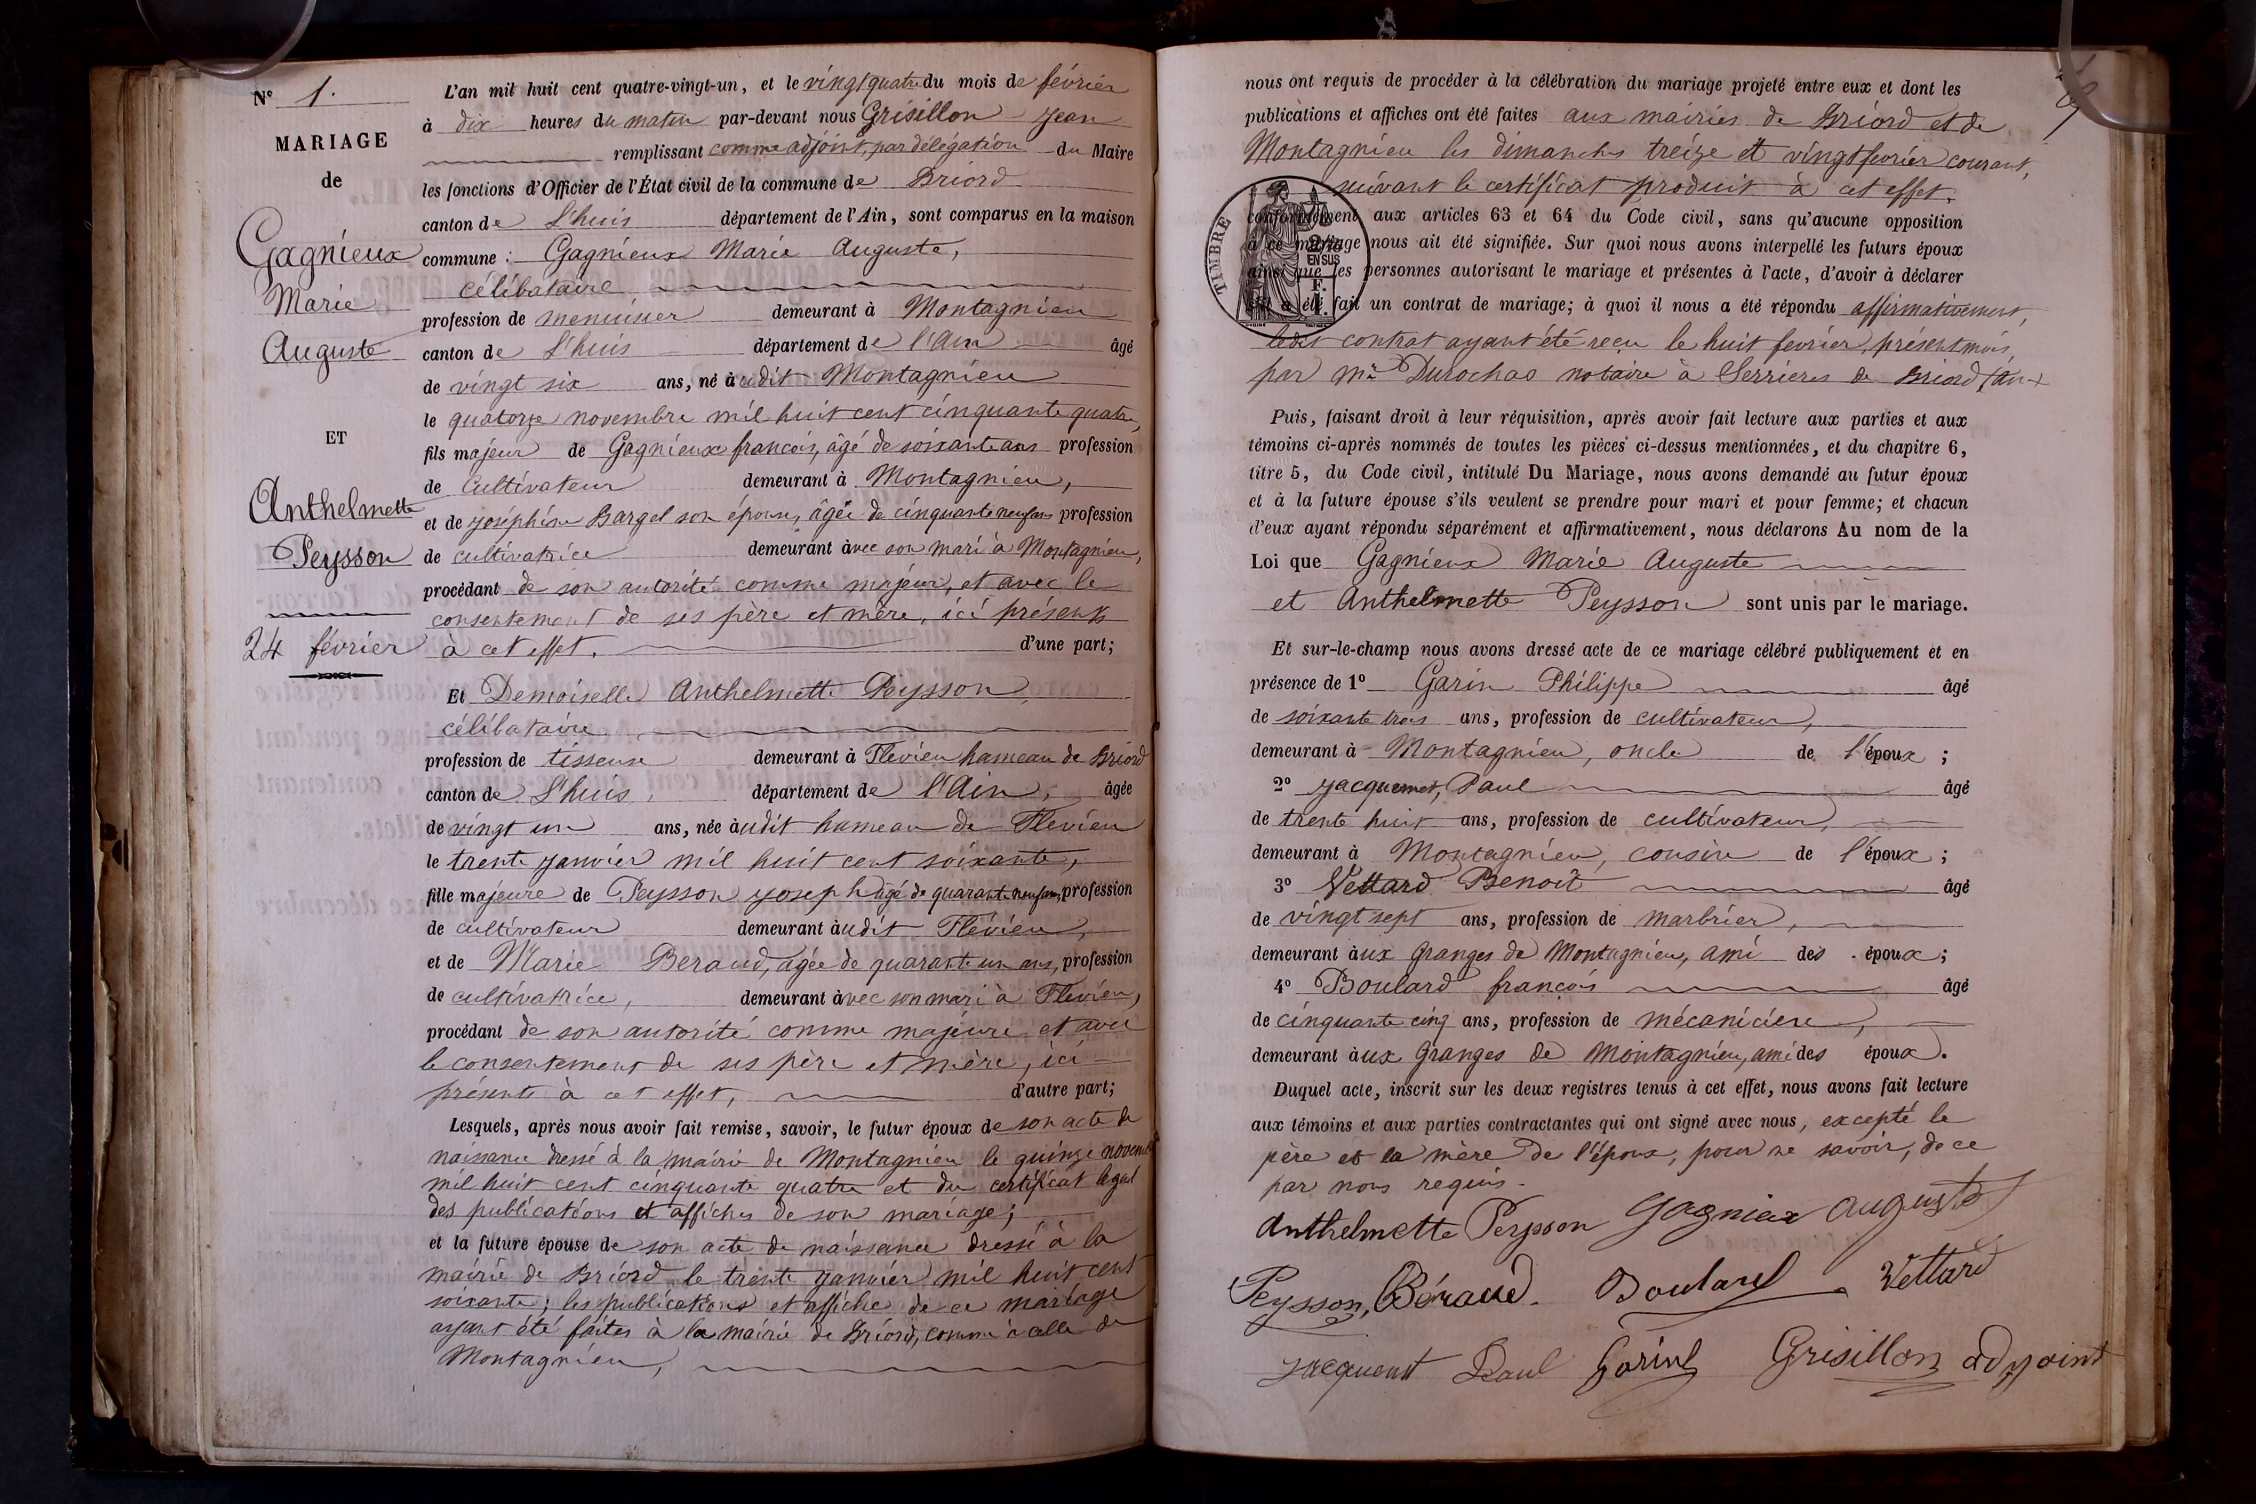 N° 1.
MARIAGE
de
Gagnieux
Marie
Auguste
ET
Anthelmette
Peysson
24 février
L'an mil huit cent quatre-vingt-un, et le vingt quatre du mois de février
à dix heures du matin par-devant nous Grisillon Jean
remplissant comme adjoint, par délégation du Maire
les fonctions d'Officier de l'État civil de la commune de Briord
canton de L'huis département de l'Ain, sont comparus en la maison
commune : Gagnieux Marie Auguste,
célibataire
profession de menuisier demeurant à Montagnieu
canton de L'huis département de l'Ain âgé
de vingt six ans, né audit Montagnieu
le quatorze novembre mil huit cent cinquante quatre,
fils majeur de Gagnieux francois, âgé de soixante ans profession
de cultivateur demeurant à Montagnieu,
et de Joséphine Bargel son épouse, âgée de cinquante neuf ans profession
de cultivatrice demeurant avec son mari à Montagnieu,
procédant de son autorité comme majeur, et avec le
consentement de ses père et mère, ici présents
à cet effet. d'une part;
Et Demoiselle Anthelmette Peysson,
célibataire
profession de tisseuse demeurant à Flevieu hameau de Briord
canton de L'huis, département de l'Ain, âgée
de vingt un ans, née audit hameau de Flevieu
le trente janvier mil huit cent soixante,
fille majeure de Peysson Joseph âgé de quarante neuf ans, profession
de cultivateur demeurant audit Flévieu,
et de Marie Beraud, âgée de quarante un ans, profession
de cultivatrice, demeurant avec son mari à Flevieu,
procédant de son autorité comme majeure et avec
le consentement de ses père et mère, ici
présents à cet effet, d'autre part;
Lesquels, après nous avoir fait remise, savoir, le futur époux de son acte de
naissance dressé à la mairie de Montagnieu le quinze novembre
mil huit cent cinquante quatre et du certificat legal
des publications et affiches de son mariage;
et la future épouse de son acte de naissance dressé à la
mairie de Briord le trente janvier mil huit cent
soixante; les publications et affiche de ce mariage
ayant été faites à la mairie de Briord, comme à celle de
Montagnieu,
nous ont requis de procéder à la célébration du mariage projeté entre eux et dont les
publications et affiches ont été faites aux mairies de Briord et de
Montagnieu les dimanches treize et vingt fevrier courant,
suivant le certificat produit à cet effet.
conformément aux articles 63 et 64 du Code civil, sans qu'aucune opposition
à ce mariage nous ait été signifiée. Sur quoi nous avons interpellé les futurs époux
ainsi que les personnes autorisant le mariage et présentes à l'acte, d'avoir à déclarer
s'il a été fait un contrat de mariage; à quoi il nous a été répondu affirmativement,
TIMBRE
EN SUS
F.
ledit contrat ayant été reçu le huit fevrier, présent mois,
par Mr Durochas notaire à Serrieres de Briord (Ain)
Puis, faisant droit à leur réquisition, après avoir fait lecture aux parties et aux
témoins ci-après nommés de toutes les pièces ci-dessus mentionnées, et du chapitre 6,
titre 5, du Code civil, intitulé Du Mariage, nous avons demandé au futur époux
et à la future épouse s'ils veulent se prendre pour mari et pour femme; et chacun
d'eux ayant répondu séparément et affirmativement, nous déclarons Au nom de la
Loi que Gagnieux Marie Auguste
et Anthelmette Peysson sont unis par le mariage.
Et sur-le-champ nous avons dressé acte de ce mariage célébré publiquement et en
présence de 1° Garin Philippe âgé
de soixante trois ans, profession de cultivateur,
demeurant à Montagnieu, oncle de l'époux ;
2° Jacquemet, Paul âgé
de trente huit ans, profession de cultivateur,
demeurant à Montagnieu, cousin de l'époux ;
3° Vettard Benoit âgé
de vingt sept ans, profession de marbrier,
demeurant aux Granges de Montagnieu, ami des époux ;
4° Boulard françois âgé
de cinquante cinq ans, profession de mécanicien,
demeurant aux Granges de Montagnieu, ami des époux.
Duquel acte, inscrit sur les deux registres tenus à cet effet, nous avons fait lecture
aux témoins et aux parties contractantes qui ont signé avec nous, excepté le
père et la mère de l'époux, pour ne savoir, de ce
par nous requis.
Anthelmette Peysson Gagnieux Auguste
Peysson, Béraud. Boulard Vettard
Jacquemet Paul Garin Grisillon adjoint